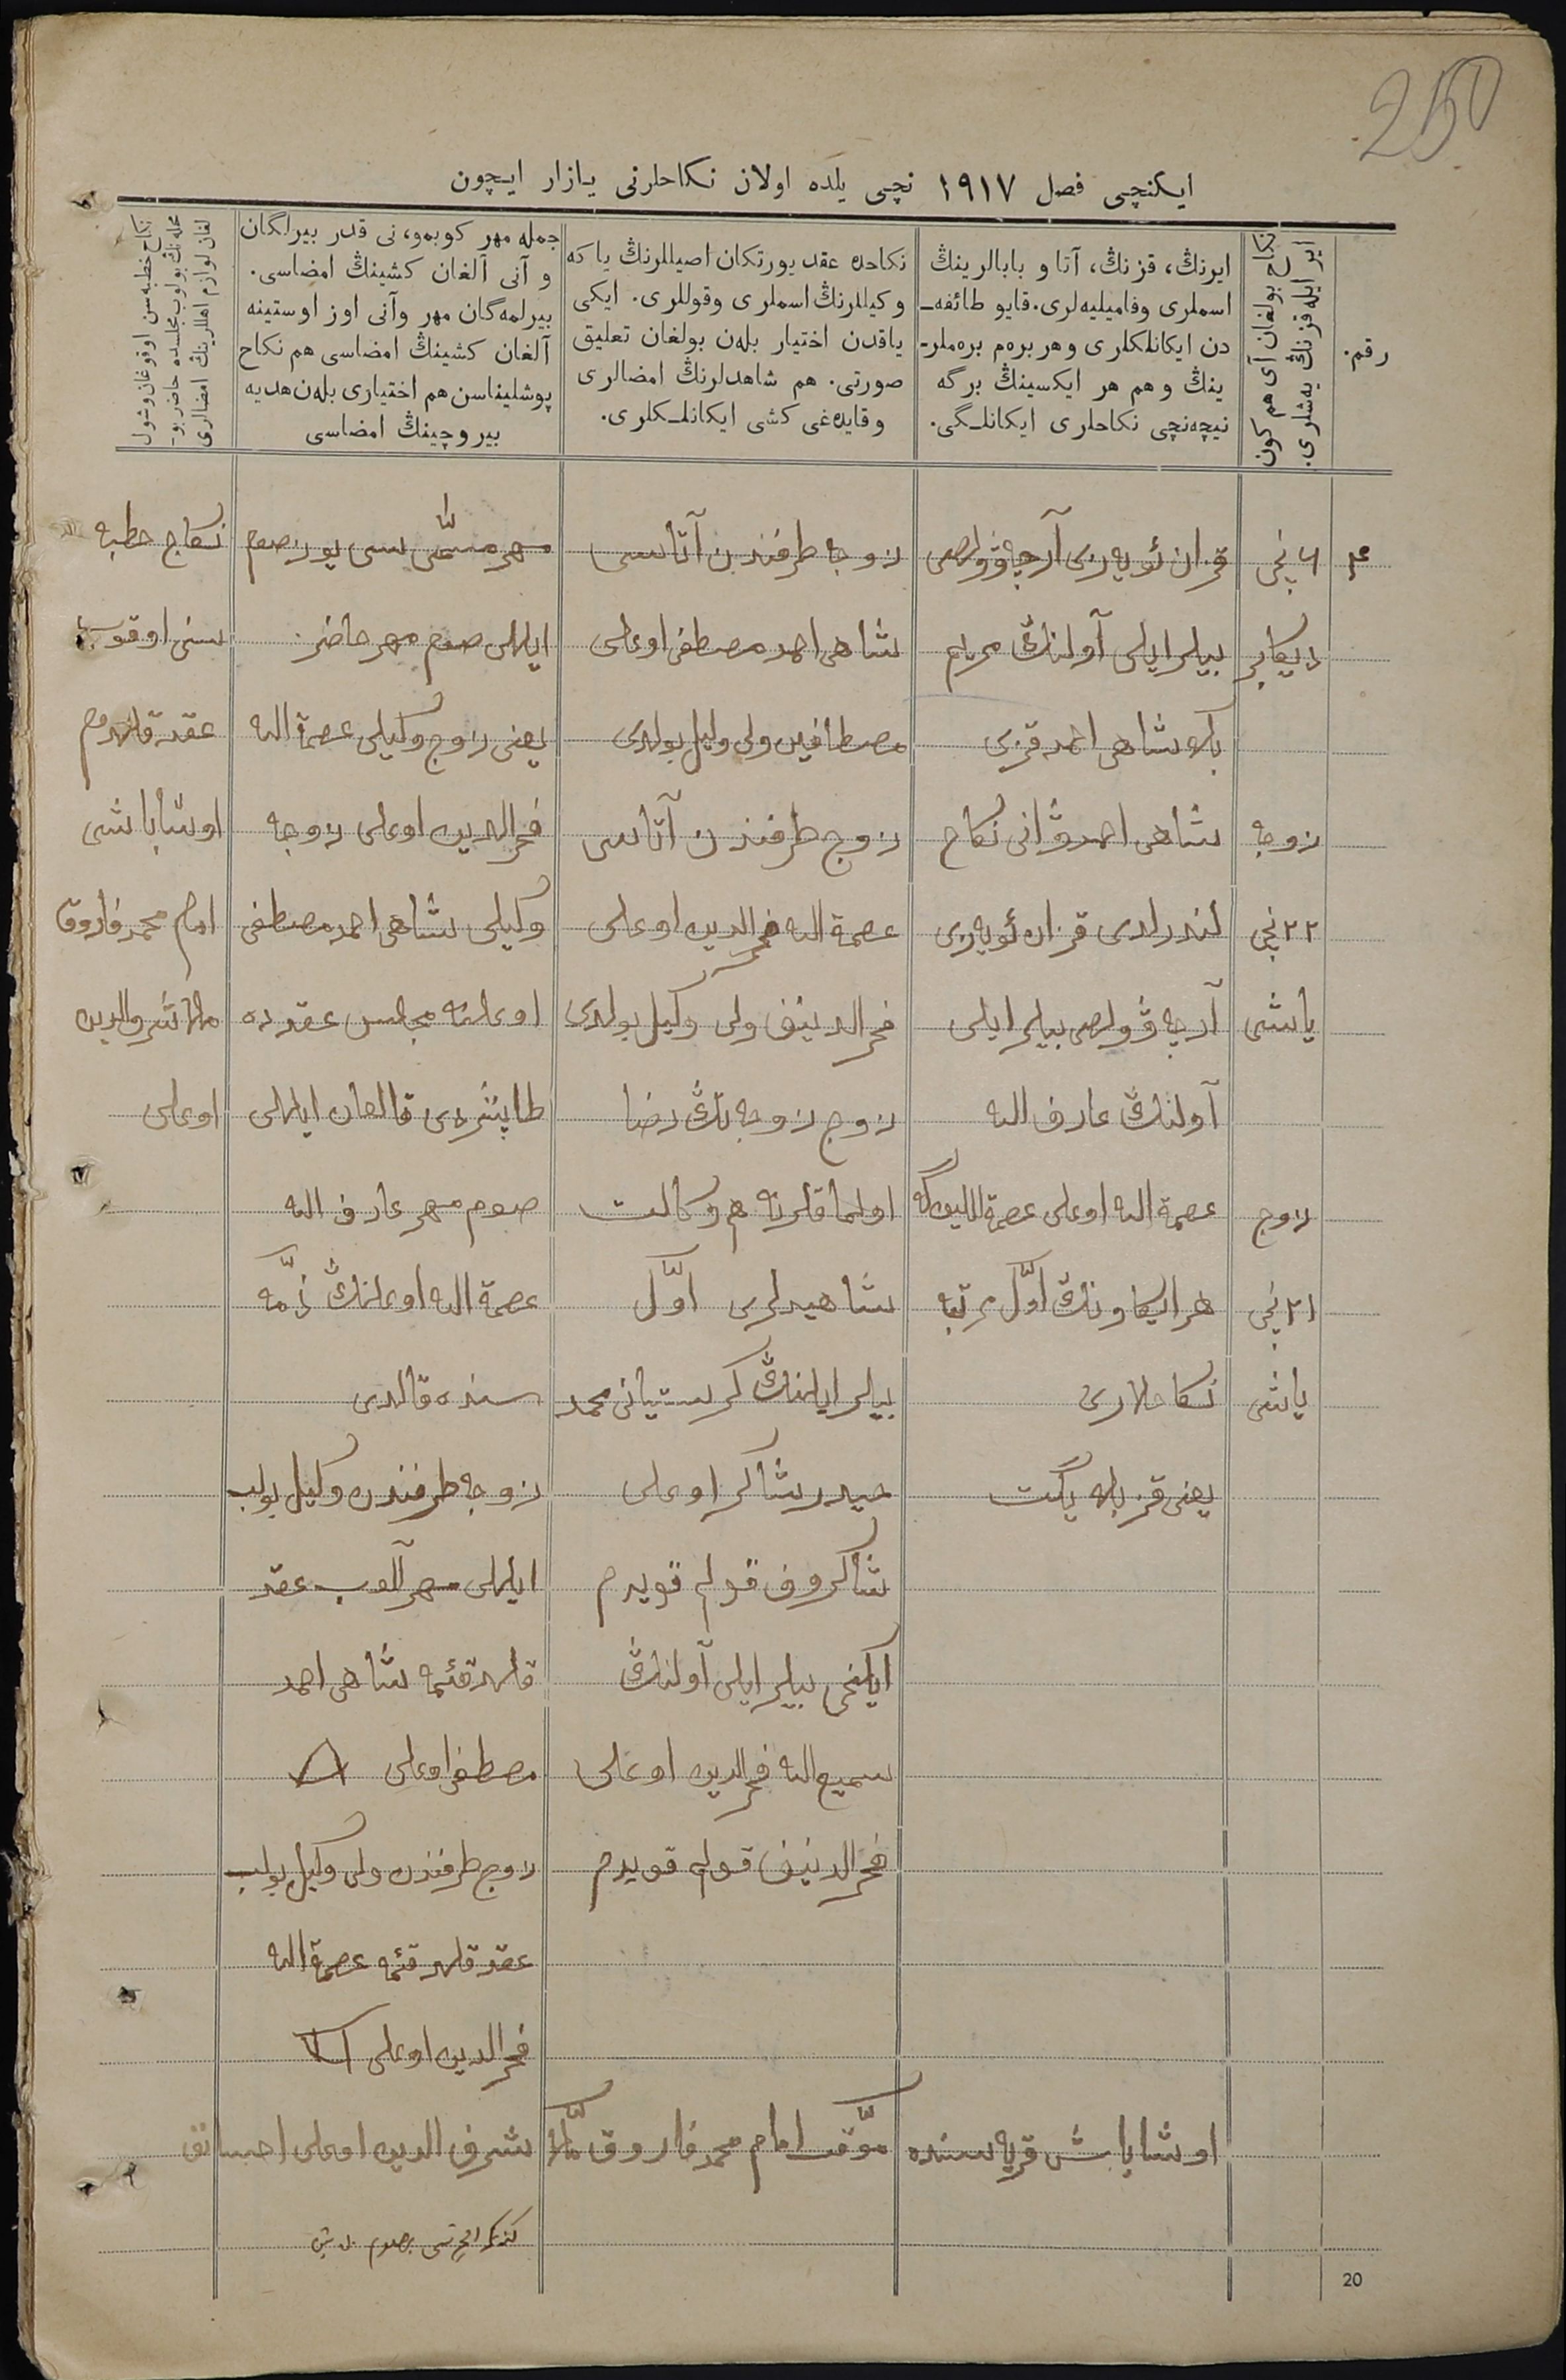 250
ایکنچی فصل ۱۹۱۷ نچی یلده اولان نکاحلرنی یازار ایچون
رقم.
نکاح بولغان آی هم کون
ایر ایله قزنڭ یەشلری.
ایرنڭ، قزنڭ، آتا و بابالرینڭ
اسملری وفامیلیه‌لری. قایو طائفه‌ـ
دن ایکانلکلری و هر بره‌م بره‌ملرـ
ینڭ و هم هر ایکسینڭ برگه
نیچه‌نچی نکاحلری ایکانلـگی.
نکاحده عقد یورتکان اصیللرنڭ یا که
وکیللرنڭ اسملری وقوللری. ایکی
یاقدن اختیار بله‌ن بولغان تعلیق
صورتی. هم شاهدلرنڭ امضالری
و قایده‌غی کشی ایکانلـکلری.
جمله مهر کوبمو، نی قدر بیرلگان
و آنی آلغان کشینڭ امضاسی.
بیرلمه‌گان مهر وآنی اوز اوستینه
آلغان کشینڭ امضاسی هم نکاح
پوشلیناسن هم اختیاری بله‌ن هدیه
بیر وچینڭ امضاسی
نکاح خطبه‌سن اوقوغان وشول
محله‌نڭ بولوب مجلسده حاضر بو-
لغان لوازم اهللرینڭ امضالری
۴
۶ نچی
دیکابر
زوجه
۲۲ نچی
یاشی
زوج
۲۱ نچی
یاشی
قزان ئویه‌زی آرچه ڤولصی
بیلر ایلی آولنڭ مریم
بکه شاهی احمد قزی
شاهی احمدوڤانی نکاح
لندرلدی قزان ئویه‌زی
آرچه ڤولصی بیلر ایلی
آولنڭ عارف الله
عصمة الله اوغلی عصمة اللیوفکه
هر ایکاونڭ اوّل مرتبه
نکاحلاری
یعنی قز بله یگت
زوجه طرفندن آتاسی
شاهی احمد مصطفی اوغلی
مصطافین ولی ولیل بولدی
زوج طرفندن آتاسی
عصمة الله فخر الدین اوغلی
فخر الدینف ولی وکیل بولدی
زوج زوجه‌نڭ رضا
اولماقلرنه هم وکالت
شاهیدلری اوّل
بیلر ایلینڭ کرستیانی محمد
حیدر شاکر اوغلی
شاکروف قولم قویدم
ایکنچی بیلر ایلی آولنڭ
سمیع الله فخر الدین اوغلی
فخر الدینف قولم قویدم
مهر مسمّی سی یوز صوم
ایللی صوم مهر حاضر
یعنی زوج وکیلی عصمة الله
فخر الدین اوغلی زوجه
وکیلی شاهی احمد مصطفی
اوغلینه مجلس عقدده
طاپشردی قالغان ایللی
صوم مهر عارف الله
عصمة الله اوغلنڭ ذمّه
سنده قالدی
زوجه طرفندن وکیل بولب
ایللی مهر آلوب عقد
قلدقمه شاهی احمد
مصطفی اوغلی
زوج طرفندن ولی وکیل بولب
عقد قلدقمه عصمة الله
فخر الدین اوغلی
نکاح خطبه
سنی اوقوب
عقد قلدم
اوشاباشی
امام محمد فاروق
ملا شرف الدین
اوغلی
اوشاباش قریه سنده
موّقت امام محمد فاروق ملّا
شرف الدین اوغلی
20